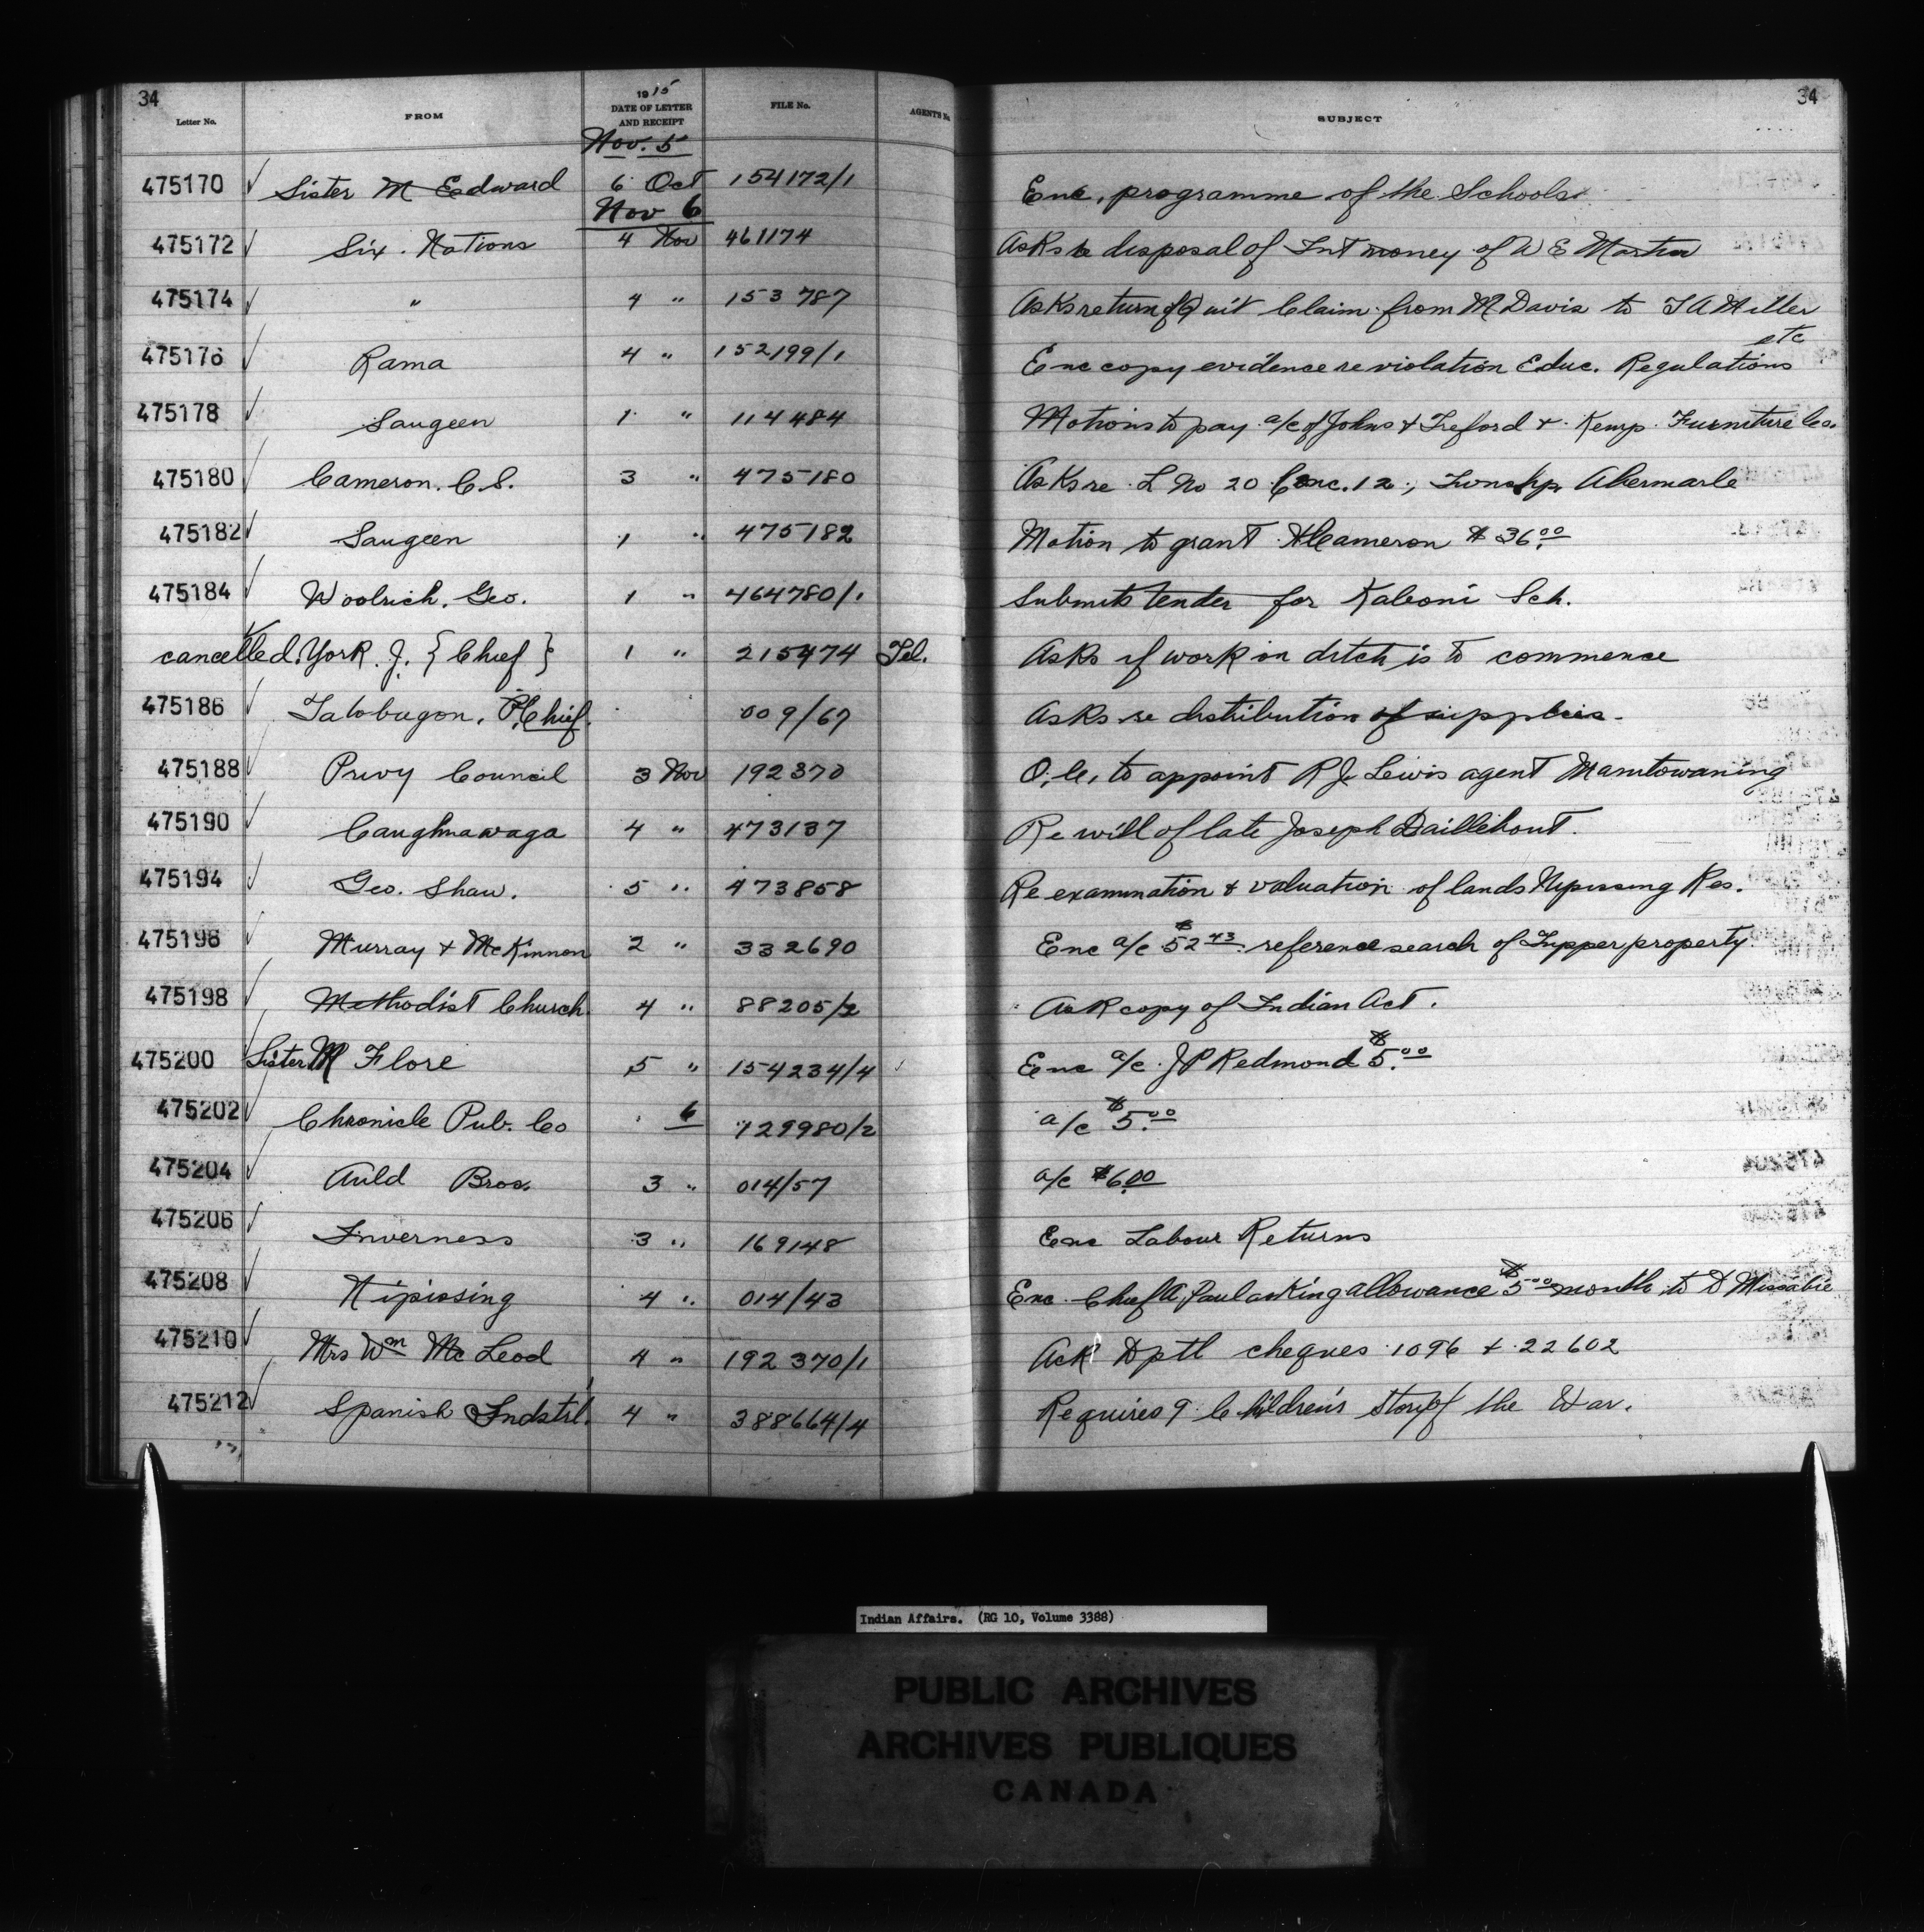 34
34
Letter No. FROM 1915 DATE OF LETTER AND RECEIPT FILE No. AGENT'S No. SUBJECT
Nov. 5
475170 Sister M Edward 6 Oct 154172/1 Enc. programme of the Schools
Nov 6
475172 Six Nations 4 Nov 461174 Asks re disposal of Int money of W E Martin
475174 " 4 " 153787 Asks return of Quit Claim from M Davis to T A Miller etc
475176 Rama 4 " 152199/1 Enc copy evidence re violation Educ. Regulations
475178 Saugeen 1 " 114484 Motions to pay a/c of Johns & Treford & Kemp Furniture Co.
475180 Cameron. C S. 3 " 475180 Asks re L No 20 Conc. 12, Townshp Abermarle
475182 Saugeen 1 " 475182 Motion to grant Cameron $36.00
475184 Woolrich. Geo. 1 " 464780/1 Submits tender for Kaboni Sch.
cancelled. York. J. {Chief} 1 " 215474 Tel. Asks if work on ditch is to commence
475186 Tatobugon, P. Chief. 009/67 Asks re distribution of supplies.
475188 Privy Council 3 Nov 192370 O.C. to appoint R J. Lewis agent Manitowaning
475190 Caughnawaga 4 " 473137 Re will of late Joseph Daillebout.
475194 Geo. Shaw. 5 " 473858 Re examination & valuation of lands Nipissing Res.
475196 Murray & McKinnon 2 " 332690 Enc a/c $52.43 reference search of Tupper property.
475198 Methodist Church 4 " 88205/2 Ask copy of Indian Act.
475200 Sister M Flore 5 " 154234/4 Enc a/c J P Redmond $5.00
475202 Chronicle Pub. Co 6 129980/2 a/c $5.00
475204 Auld Bros. 3 " 014/57 a/c $6.00
475206 Inverness 3 " 169148 Enc Labour Returns
475208 Nipissing 4 " 014/43 Enc. Chief A. Paul asking allowance $5.00 month to D Missabie
475210 Mrs Wm McLeod 4 " 192370/1 Ack Dptl cheques 1096 & 22602
475212 Spanish Indstrl. 4 " 388664/4 Requires 9 Children's Story of the War.
Indian Affairs. (RG 10, Volume 3388)
PUBLIC ARCHIVES
ARCHIVES PUBLIQUES
CANADA